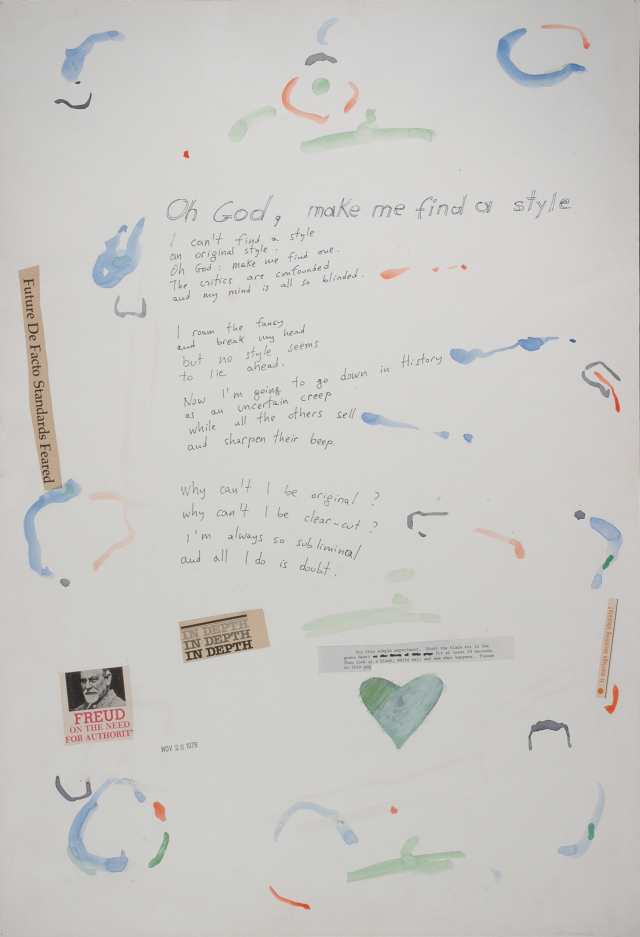 Oh God, make me find a style
I can't find a style
an original style.
Oh God: make me find one.
The critics are confounded
and my mind is all so blinded.
I roam the fancy
and break my head
but no style seems
to lie ahead.
Now I'm going to go down in History
as an uncertain creep
while all the others sell
and sharpen their beep.
Why can't I be original?
why can't I be clear-cut?
I'm always so subliminal
and all I do is doubt.
Future De Facto Standards Feared
IN DEPTH
IN DEPTH
IN DEPTH
Try this simple experiment. Stare the black dot in the
green heart for at least 30 seconds.
Then look at a blank, white wall and see what happens. Please
do this
FREUD
ON THE NEED
FOR AUTHORIT
NOV 28 1978